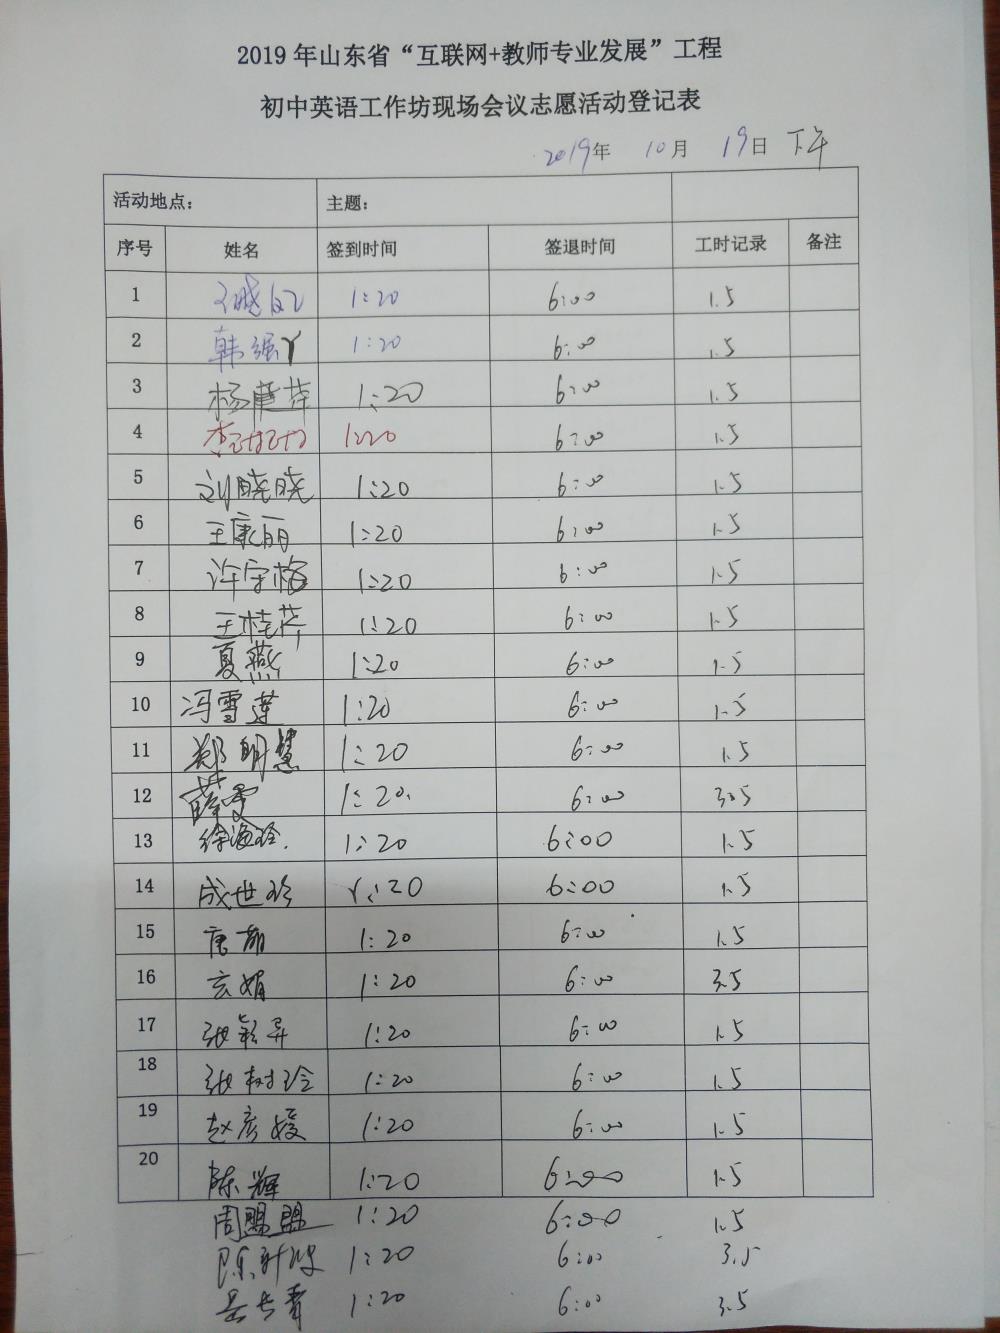 2019年山东省“互联网+教师专业发展”工程
初中英语工作坊现场会议志愿活动登记表
2019年 10月 19日 下午
活动地点： 主题：
序号 姓名 签到时间 签退时间 工时记录 备注
1 1:20 6:00 1.5
2 韩强 1:20 6:00 1.5
3 杨 萍 1:20 6:00 1.5
4 李 1:20 6:00 1.5
5 刘晓晓 1:20 6:00 1.5
6 王康丽 1:20 6:00 1.5
7 许守梅 1:20 6:00 1.5
8 王桂芹 1:20 6:00 1.5
9 夏燕 1:20 6:00 1.5
10 冯雪莲 1:20 6:00 1.5
11 郑明慧 1:20 6:00 1.5
12 薛雯 1:20 6:00 3.5
13 徐海玲 1:20 6:00 1.5
14 成世珍 1:20 6:00 1.5
15 唐萌 1:20 6:00 1.5
16 玄娟 1:20 6:00 3.5
17 张颖异 1:20 6:00 1.5
18 张树玲 1:20 6:00 1.5
19 赵彦媛 1:20 6:00 1.5
20 陈辉 1:20 6:00 1.5
周盟盟 1:20 6:00 1.5
陈 1:20 6:00 3.5
岳长青 1:20 6:00 3.5